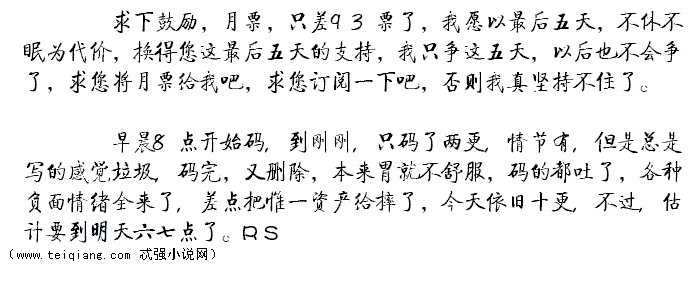 求下鼓励，月票，只差93票了，我愿以最后五天，不休不
眠为代价，换得您这最后五天的支持，我只争这五天，以后也不会争
了，求您将月票给我吧，求您订阅一下吧，否则我真坚持不住了。
早晨8点开始码，到刚刚，只码了两更，情节有，但是总是
写的感觉垃圾，码完，又删除，本来胃就不舒服，码的都吐了，各种
负面情绪全来了，差点把惟一资产给摔了，今天依旧十更，不过，估
计要到明天六七点了。RS
（www.teiqiang.com 忒强小说网）